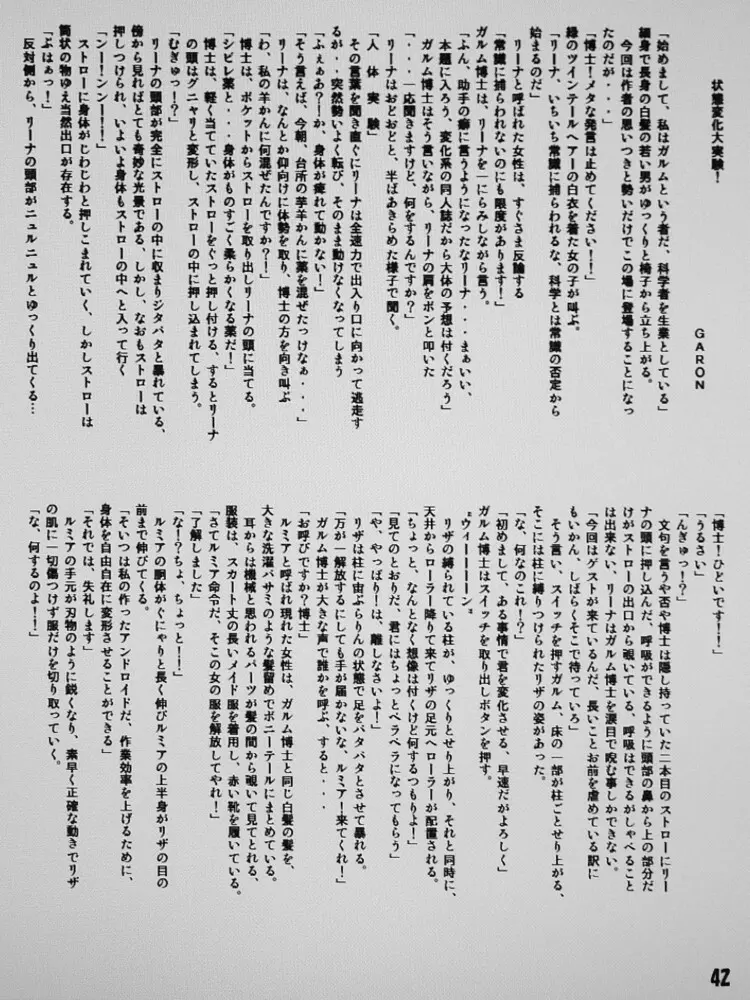 状態変化大実験！
GARON
「始めまして、私はガルムという者だ、科学者を生業としている」
細身で長身の白髪の若い男がゆっくりと椅子から立ち上がる。
今回は作者の思いつきと勢いだけでこの場に登場することになっ
たのだが・・・・」
「博士！メタな発言は止めてください！！」
緑のツインテールヘアーの白衣を着た女の子が叫ぶ。
「リーナ、いちいち常識に捕らわれるな、科学とは常識の否定から
始まるのだ」
リーナと呼ばれた女性は、すぐさま反論する
「常識に捕らわれないのにも限度があります！」
ガルム博士は、リーナを一にらみしながら言う。
「ふん、助手の癖に言うようになったなリーナ・・・まぁいい、
本題に入ろう、変化系の同人誌だから大体の予想は付くだろう」
ガルム博士はそう言いながら、リーナの肩をポンと叩いた
「・・・・一応聞きますけど、何をするんですか？」
リーナはおどおどと、半ばあきらめた様子で聞く。
「人 体 実 験」
その言葉を聞き直ぐにリーナは全速力で出入り口に向かって逃走す
るが・・突然勢いよく転び、そのまま動けなくなってしまう
「ふぇぁあ？！か、身体が痺れて動かない！」
「そう言えば、今朝、台所の芋羊かんに薬を混ぜたっけなぁ・・・」
リーナは、なんとか仰向けに体勢を取り、博士の方を向き叫ぶ
「わ、私の羊かんに何混ぜたんですか？！」
博士は、ポケットからストローを取り出しリーナの頭に当てる。
「シビレ薬と・・・身体がものすごく柔らかくなる薬だ！」
博士は、軽く当てていたストローをぐっと押し付ける、するとリーナ
の頭はグニャリと変形し、ストローの中に押し込まれてしまう。
「むぎゅっ！？」
リーナの頭部が完全にストローの中に収まりジタバタと暴れている、
傍から見ればとても奇妙な光景である、しかし、なおもストローは
押しつけられ、いよいよ身体もストローの中へと入って行く
「ンー！ンンー！！」
ストローに身体がじわじわと押しこまれていく、しかしストローは
筒状の物ゆえ当然出口が存在する。
「ぷはぁっ！」
反対側から、リーナの頭部がニュルニュルとゆっくり出てくる…
「博士！ひどいです！！」
「うるさい」
「んぎゅっ！？」
文句を言うや否や博士は隠し持っていた二本目のストローにリー
ナの頭に押し込んだ、呼吸ができるように頭部の鼻から上の部分だ
けがストローの出口から覗いている、呼吸はできるがしゃべること
は出来ない、リーナはガルム博士を涙目で睨む事しかできない。
「今回はゲストが来ているんだ、長いことお前を虐めている訳に
もいかん、しばらくそこで待っていろ」
そう言い、スイッチを押すガルム、床の一部が柱ごとせり上がる、
そこには柱に縛りつけられたリザの姿があった。
「な、何なのこれ！？」
「初めまして、ある事情で君を変化させる、早速だがよろしく」
ガルム博士はスイッチを取り出しボタンを押す。
"ウィーーーーン"
リザの縛られている柱が、ゆっくりとせり上がり、それと同時に、
天井からローラー降りて来てリザの足元へローラーが配置される。
「ちょっと、なんとなく想像は付くけど何するつもりよ！」
「見てのとおりだ、君にはちょっとペラペラになってもらう」
「や、やっぱり！は、離しなさいよ！」
リザは柱に宙ぶらりんの状態で足をバタバタとさせて暴れる。
「万が一解放するにしても手が届かないな、ルミア！来てくれ！」
ガルム博士が大きな声で誰かを呼ぶ、すると・・・
「お呼びですか？博士」
ルミアと呼ばれ現れた女性は、ガルム博士と同じ白髪の髪を、
大きな洗濯バサミのような髪留めでポニーテールにまとめている。
耳からは機械と思われるパーツが髪の間から覗いて見てとれる、
服装は、スカート丈の長いメイド服を着用し、赤い靴を履いている。
「さてルミア命令だ、そこの女の服を解放してやれ！」
「了解しました」
「な！？ちょ、ちょっと！！」
ルミアの胴体がぐにゃりと長く伸びルミアの上半身がリザの目の
前まで伸びてくる。
「そいつは私の作ったアンドロイドだ、作業効率を上げるために、
身体を自由自在に変形させることができる」
「それでは、失礼します」
ルミアの手元が刃物のように鋭くなり、素早く正確な動きでリザ
の肌に一切傷つけず服だけを切り取っていく。
「な、何するのよ！！」
42